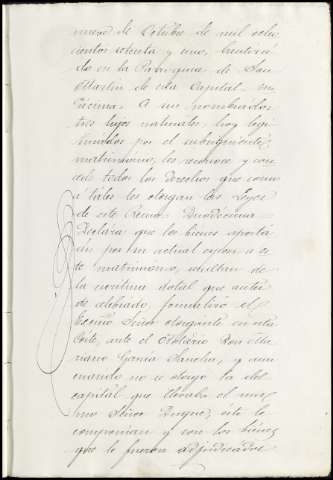 nueve de Octubre de mil ocho
cientos setenta y uno, bautiza
do en la Parroquia de San
Martín de esta Capital. en
Párvma. A sus nombrados
tres hijos naturales, hoy legi
timados por el subsiguiente
matrimonio, les reconoce y con
cede todos los Derechos que como
a tales les otorgan las Leyes
de este Reino. Duodécima
Declara que los bienes aporta
dos por su actual esposa a es
te matrimonio, resultan de
la escritura dotal que antes
de celebrado, formalizó el
Excmo Señor otorgante en esta
Corte, ante el Notario Don Ma
riano García Sancha, y aun
cuando no se otorgó la del
capital que llevaba el mis
mo Señor Duque, este lo
componían y son los bienes
que le fueron adjudicados